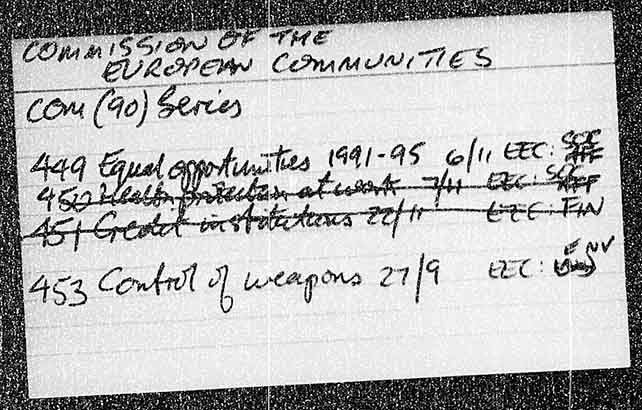 COMMISSION OF THE
EUROPEAN COMMUNITIES
COM (90) Series
449 Equal opportunities 1991-95 6/11 EEC: SOC
450 Health protection at work 7/11 EEC: SOC AFF
451 Credit institutions 22/11 EEC: FIN
453 Control of weapons 27/9 EEC: ENV